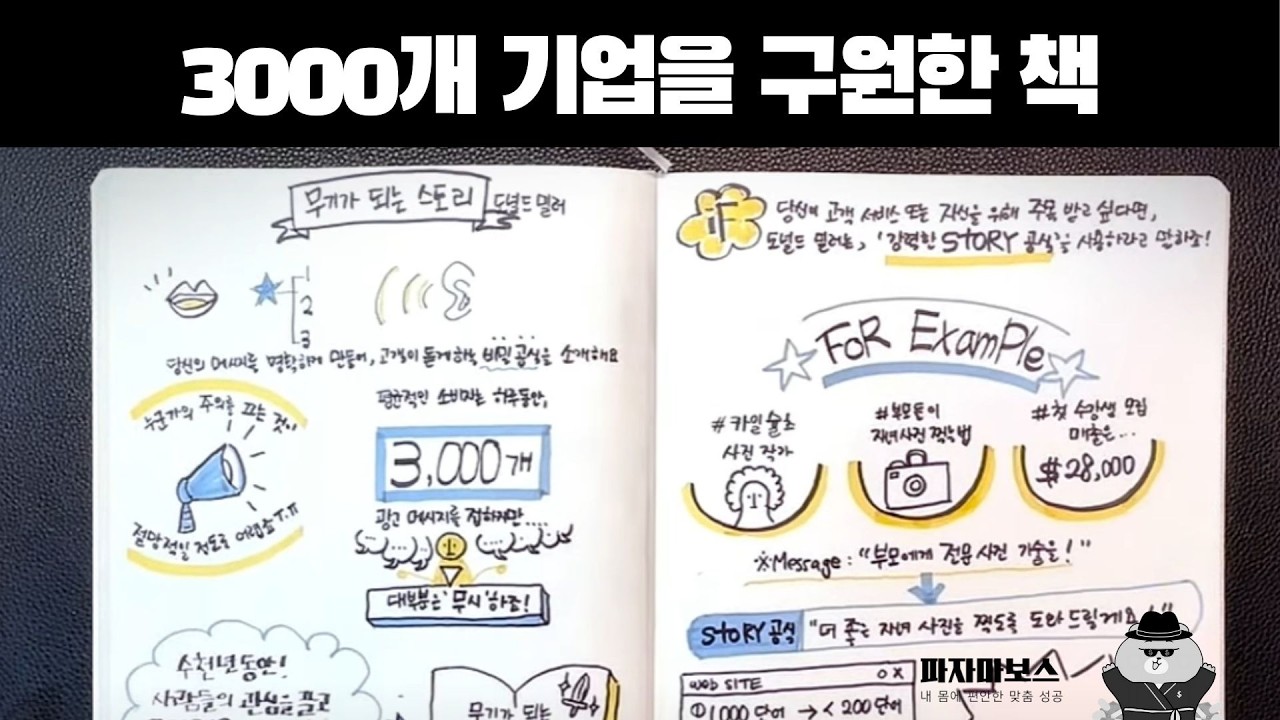 3000개 기업을 구원한 책
무기가 되는 스토리 도널드 밀러
1
2
3
당신의 메시지를 명확하게 만들어, 고객이 듣게 하는 비밀 공식을 소개해요
누군가의 주의를 끄는 것이
절망적일 정도로 어렵죠 ㅠ.ㅠ
평균적인 소비자는 하루동안,
3,000개
광고 메시지를 접하지만....
대부분은 '무시'하죠!
수천년동안!
사람들의 관심을 끌고
무기가 되는
IF
당신이 고객 서비스 또는 자신을 위해 주목 받고 싶다면,
도널드 밀러는, '강력한 STORY 공식'을 사용하라고 말하죠!
FOR ExamPle
#카일 슐츠
사진 작가
#부모들이
자녀사진 찍는법
#첫 수강생 모집
매출은...
$28,000
※Message : "부모에게 전문 사진 기술을!"
STORY 공식 "더 좋은 자녀 사진을 찍도록 도와 드릴게요!"
WEB SITE O X
①1,000 단어 → < 200 단어
파자마보스
내 몸에 편안한 맞춤 성공